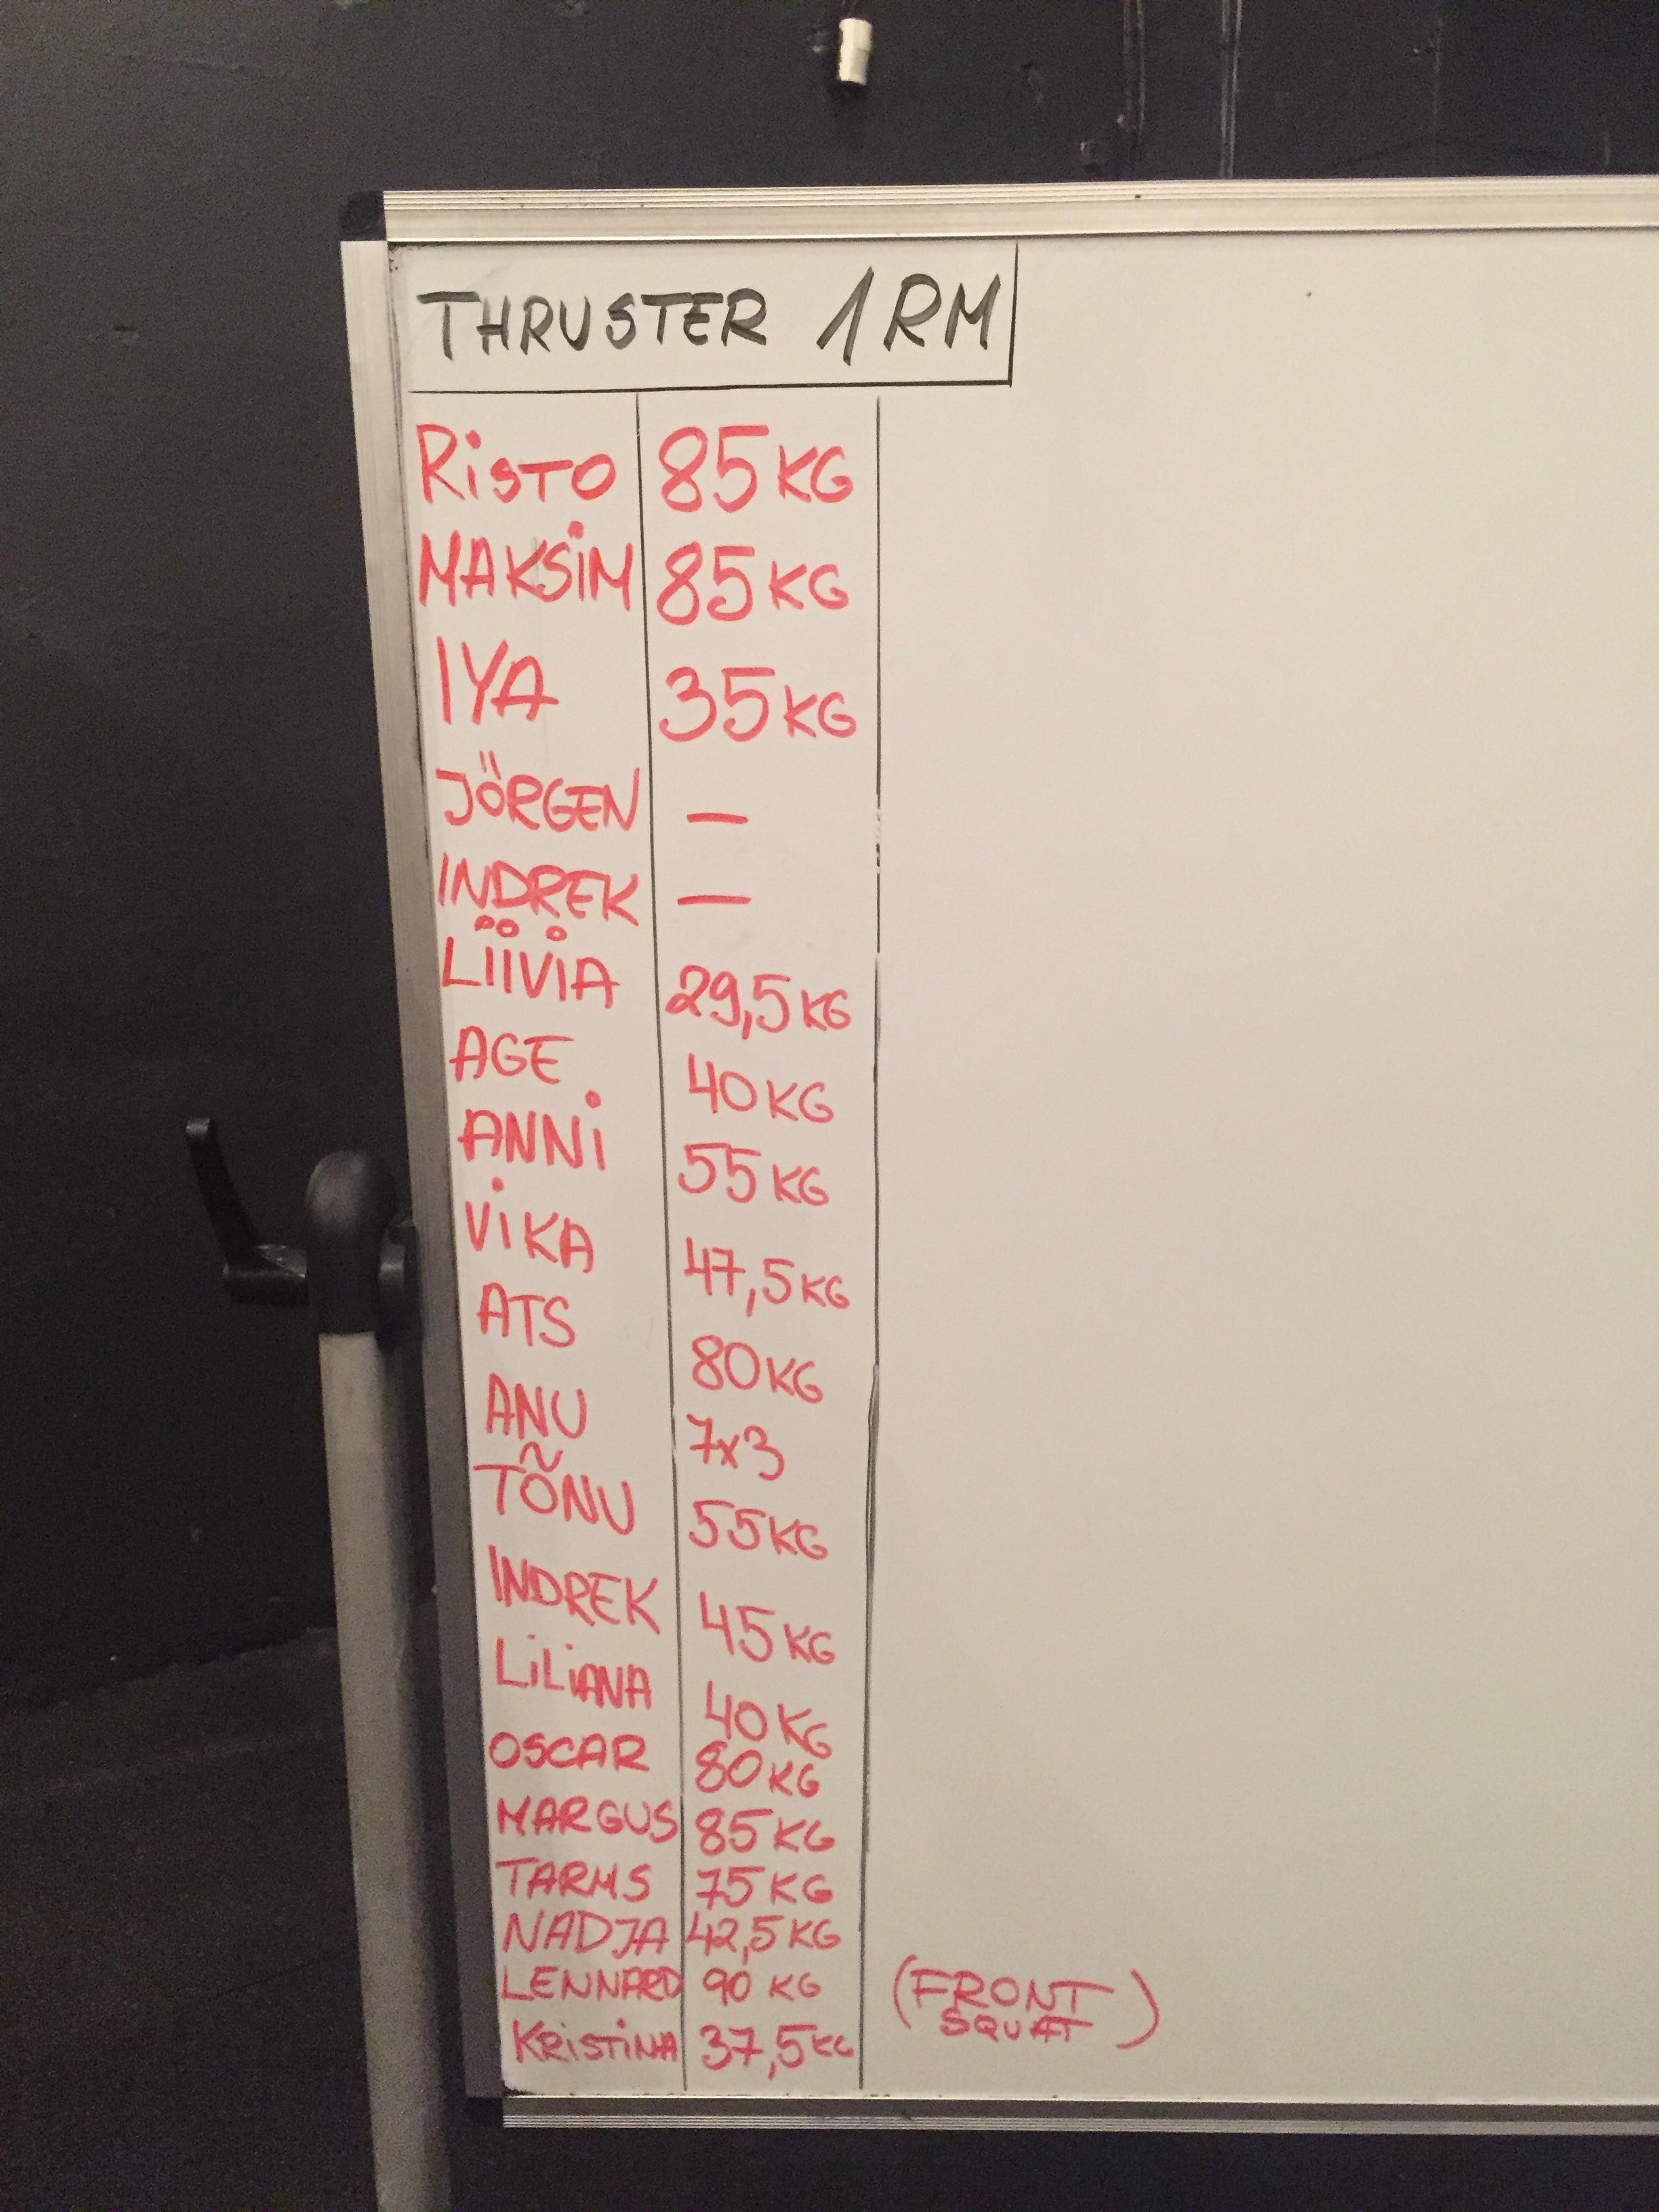 THRUSTER 1RM
RiSTO 85KG
MAKSiM 85KG
IYA 35KG
JÖRGEN —
INDREK —
LiiViA 29,5KG
AGE 40KG
ANNi 55KG
ViKA 47,5KG
ATS 80KG
ANU 7x3
TÕNU 55KG
INDREK 45KG
LiLiANA 40KG
OSCAR 80KG
MARGUS 85KG
TARMS 75KG
NADJA 42,5KG
LENNARD 90 KG (FRONT
SQUAT)
KRiSTiNA 37,5KG